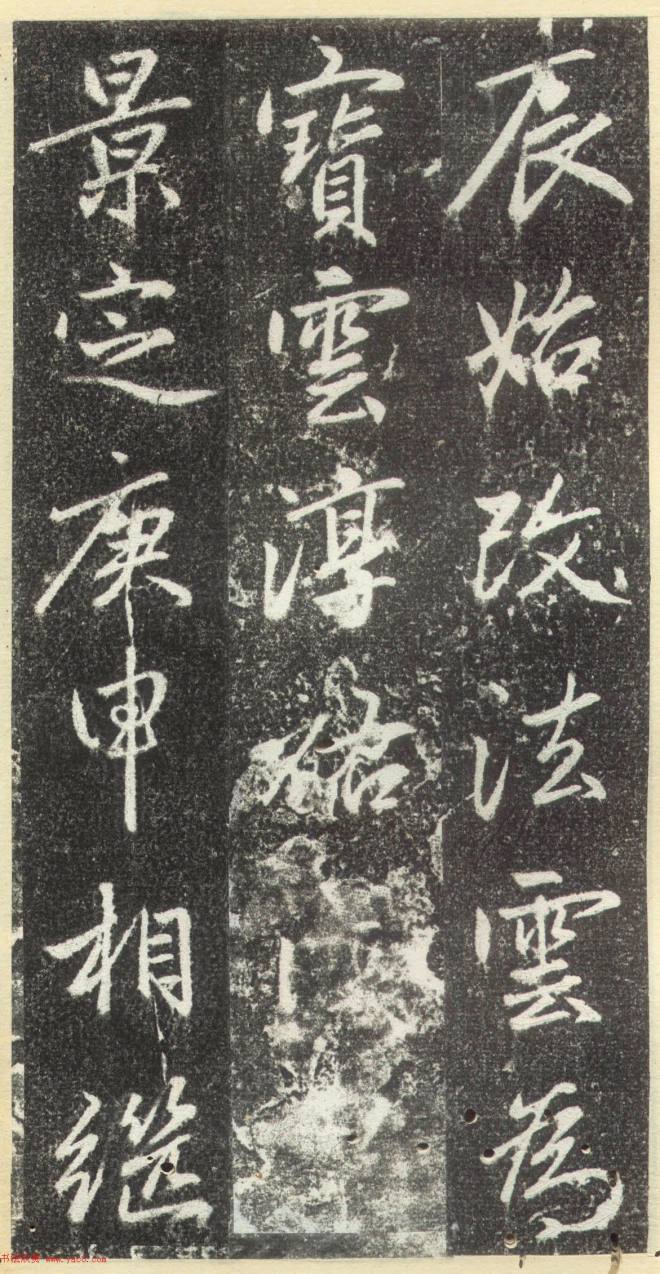 辰始改法雲為
寶雲淳祐
景定庚申相繼
书法欣赏 www.yac8.com